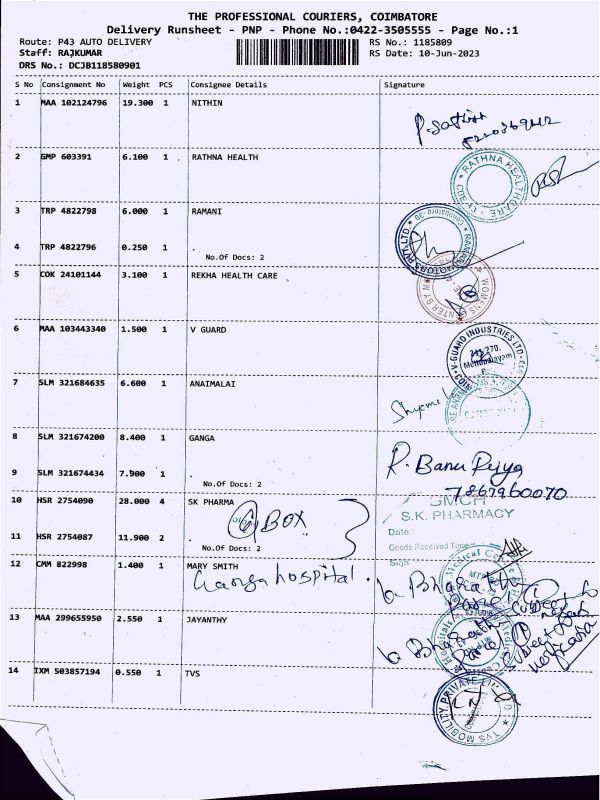 THE PROFESSIONAL COURIERS, COIMBATORE
Delivery Runsheet - PNP - Phone No.:0422-3505555 - Page No.:1
Route: P43 AUTO DELIVERY RS No.: 1185809
Staff: RAJKUMAR RS Date: 10-Jun-2023
DRS No.: DCJB118580901
S No Consignment No Weight PCS Consignee Details Signature
1 MAA 102124796 19.300 1 NITHIN
2 GMP 603391 6.100 1 RATHNA HEALTH
RATHNA HEALTHCARE
3 TRP 4822798 6.000 1 RAMANI
4 TRP 4822796 0.250 1
No.Of Docs: 2
5 COK 24101144 3.100 1 REKHA HEALTH CARE
6 MAA 103443340 1.500 1 V GUARD
V-GUARD INDUSTRIES LTD
7 SLM 321684635 6.600 1 ANAIMALAI
8 SLM 321674200 8.400 1 GANGA
R. Banu
7867960070
9 SLM 321674434 7.900 1
No.Of Docs: 2
10 HSR 2754090 28.000 4 SK PHARMA
6 BOX
S.K. PHARMACY
Date :
Goods Received Time :
Sign
11 HSR 2754087 11.900 2
No.Of Docs: 2
12 CMM 822998 1.400 1 MARY SMITH
Ganga hospital.
13 MAA 299655950 2.550 1 JAYANTHY
14 IXM 503857194 0.550 1 TVS
TVS MOBILITY PRIVATE LIMITED